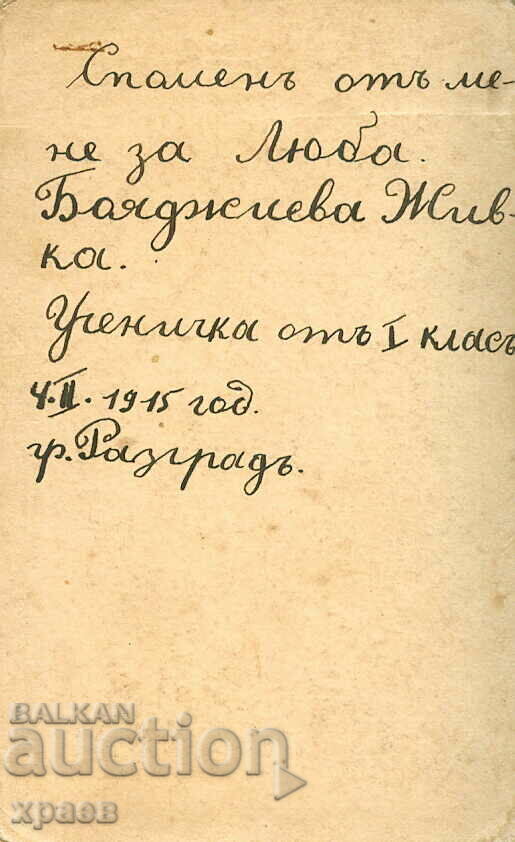 Споменъ отъ ме-
не за Люба.
Бояджиева Жив-
ка.
Ученичка отъ I класъ
4.II.1915 год.
гр. Разградъ.
BALKAN
auction
храов